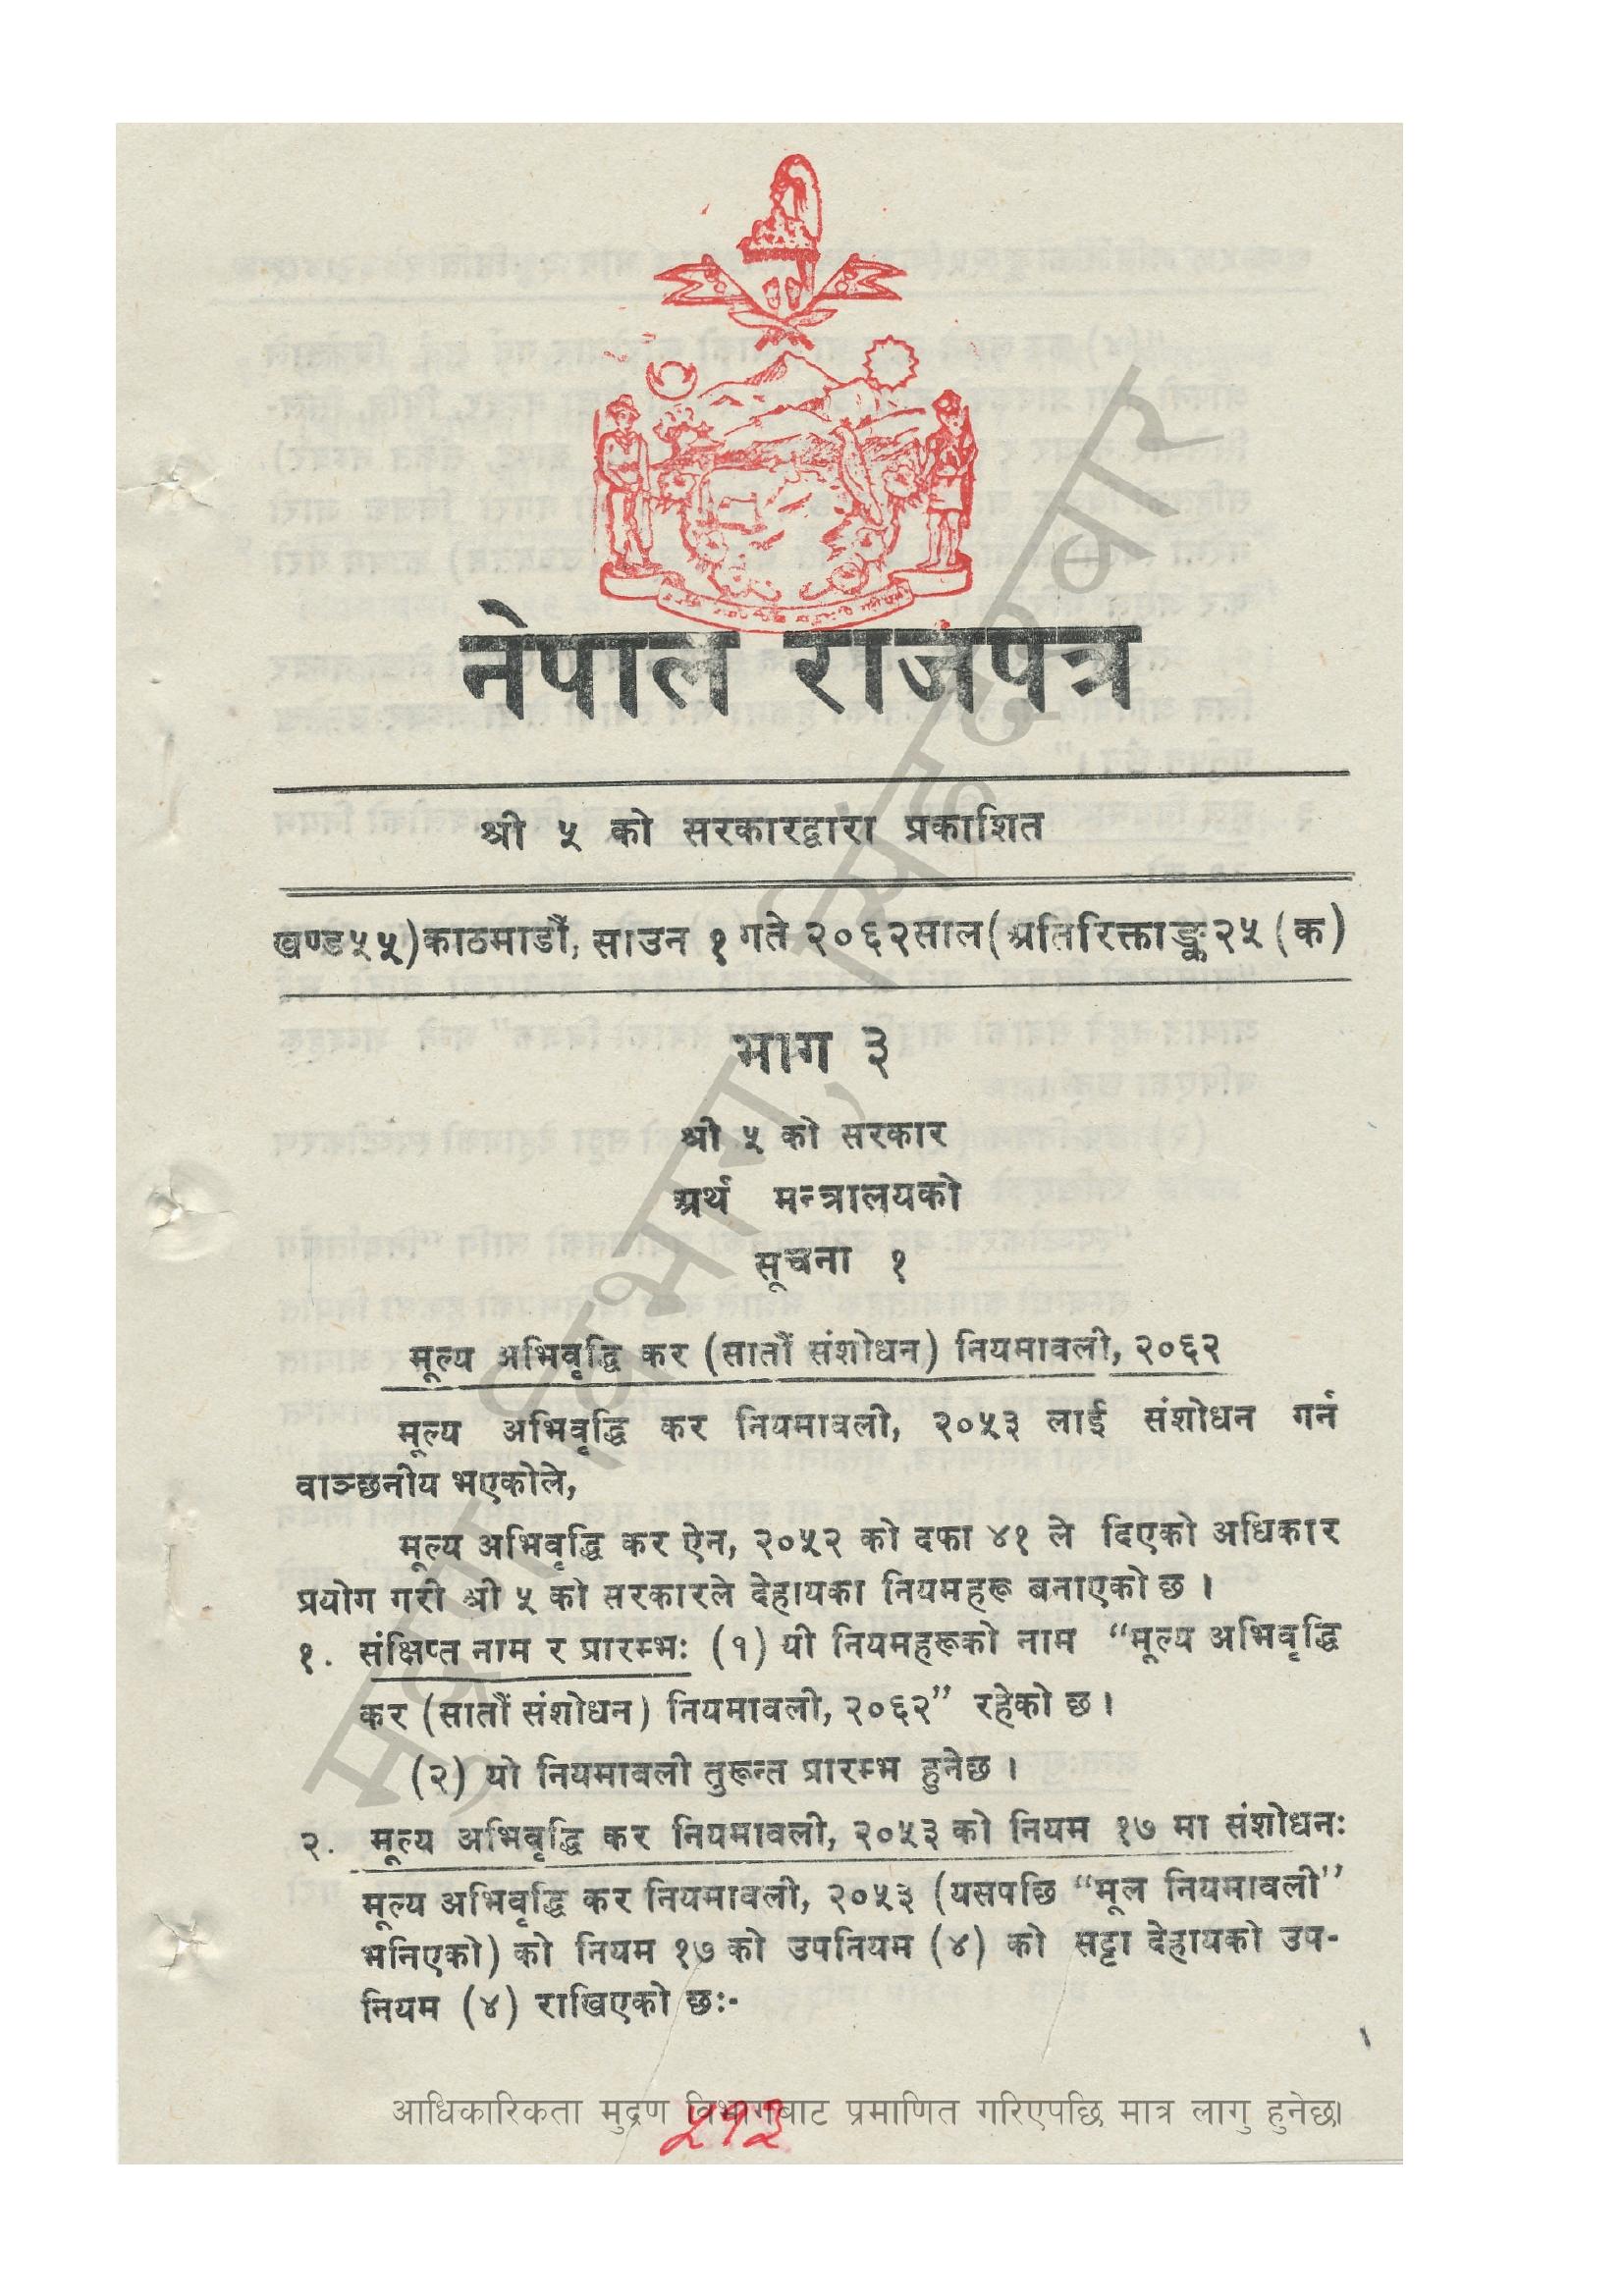 नेपाल राजपत्र
श्री ५ को सरकारद्वारा प्रकाशित
खण्ड५५)काठमाडौं, साउन १ गते २०६२साल(अतिरिक्ताङ्क२५ (क)
भाग ३
श्री ५ को सरकार
अर्थ मन्त्रालयको
सूचना १
मूल्य अभिवृद्धि कर (सातौं संशोधन) नियमावली, २०६२
मूल्य अभिवृद्धि कर नियमावली, २०५३ लाई संशोधन गर्न
वाञ्छनीय भएकोले,
मूल्य अभिवृद्धि कर ऐन, २०५२ को दफा ४१ ले दिएको अधिकार
प्रयोग गरी श्री ५ को सरकारले देहायका नियमहरू बनाएको छ ।
१. संक्षिप्त नाम र प्रारम्भः (१) यी नियमहरूको नाम “मूल्य अभिवृद्धि
कर (सातौं संशोधन) नियमावली, २०६२” रहेको छ ।
(२) यो नियमावली तुरून्त प्रारम्भ हुनेछ ।
२. मूल्य अभिवृद्धि कर नियमावली, २०५३ को नियम १७ मा संशोधनः
मूल्य अभिवृद्धि कर नियमावली, २०५३ (यसपछि “मूल नियमावली”
भनिएको) को नियम १७ को उपनियम (४) को सट्टा देहायको उप-
नियम (४) राखिएको छः-
आधिकारिकता मुद्रण विभागबाट प्रमाणित गरिएपछि मात्र लागु हुनेछ।
५१३
मुद्रण विभाग, सिंहदरवार